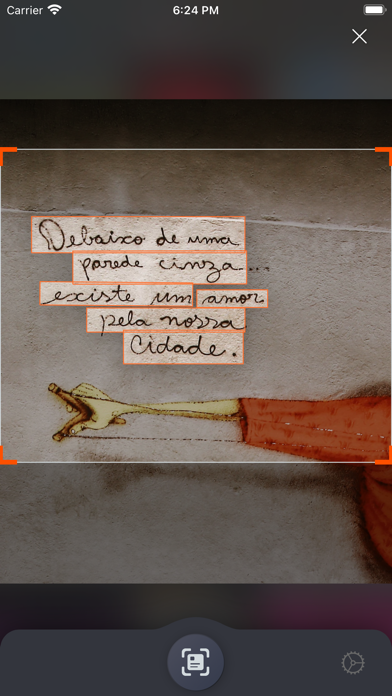 Carrier 6:24 PM
Debaixo de uma
parede cinza...
existe um amor
pela nossa
Cidade.